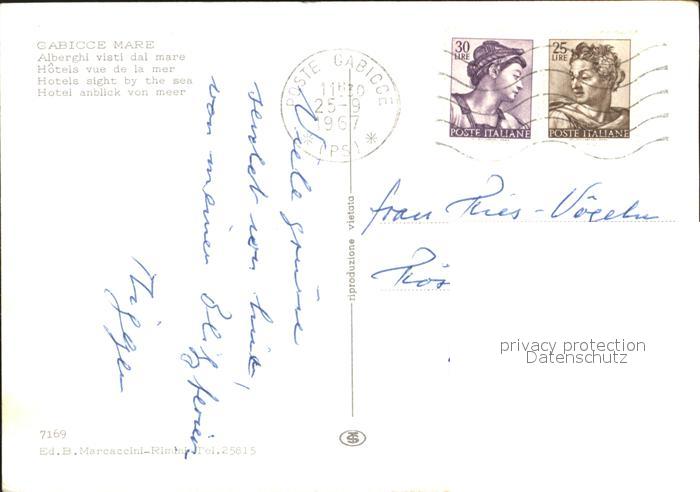 GABICCE MARE
Alberghi visti dal mare
Hôtels vue de la mer
Hotels sight by the sea
Hotel anblick von meer
POSTE GABICCE
25-9
1967
(PS)
30
LIRE
POSTE ITALIANE
25
LIRE
POSTE ITALIANE
Viele Grüsse
sendet von hier,
von meinen
riproduzione vietata
Frau Ries-Vögeln
privacy protection
Datenschutz
7169
Ed.B.Marcaccini-Rimini Tel.25815